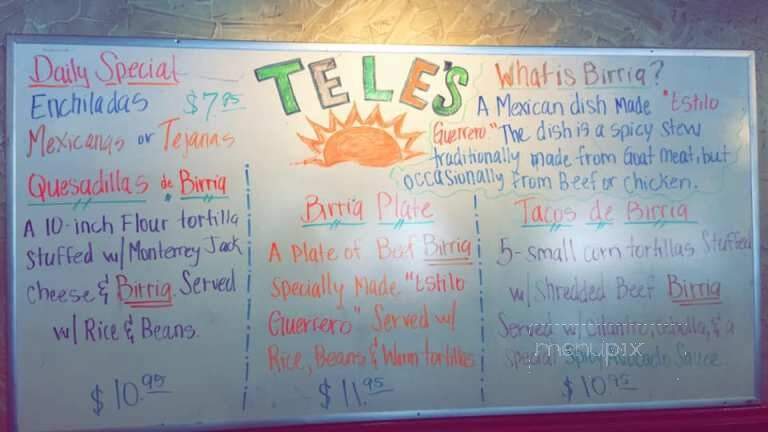 TELE'S
Daily Special
Enchiladas $7.95
Mexicanas or Tejanas
Quesadillas de Birria
A 10-inch Flour tortilla
stuffed w/Monterrey Jack
Cheese & Birria. Served
w/ Rice & Beans.
$10.95
Birria Plate
A Plate of Beef Birria
Specially Made "Estilo
Guerrero" Served w/
Rice, Beans & Warm tortillas
$11.95
What is Birria?
A Mexican dish Made "Estilo
Guerrero" The dish is a spicy stew
traditionally made from Goat meat, but
occasionally from Beef or chicken.
Tacos de Birria
5-small corn tortillas Stuffed
w/Shredded Beef Birria
Served w/Cilantro, & a
special Spicy Avocado Sauce.
$10.95
menupix